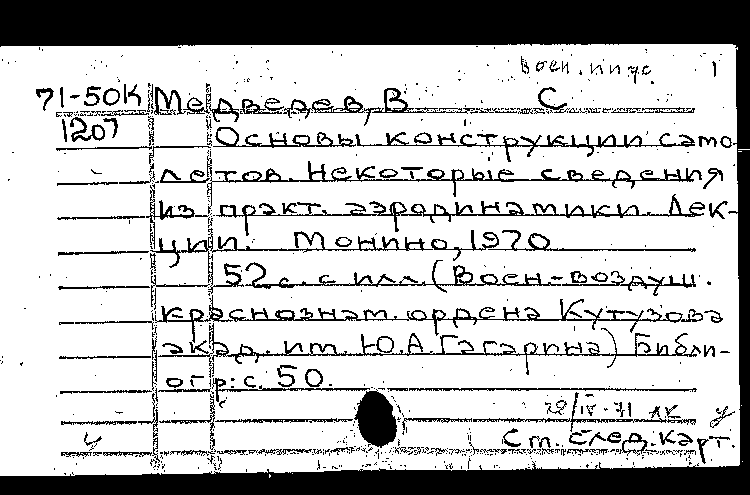 Воен. 1
71-50К Медведев, В С
1207 Основы конструкции само-
летов. Некоторые сведения
из практ. аэродинамики. Лек-
ции. Монино, 1970
52 с. с илл. (Воен-воздуш.
краснознам. ордена Кутузова
акад. им. Ю.А. Гагарина) Библи-
огр: с. 50.
28/IV-71 ЛК У
У См. след. карт.